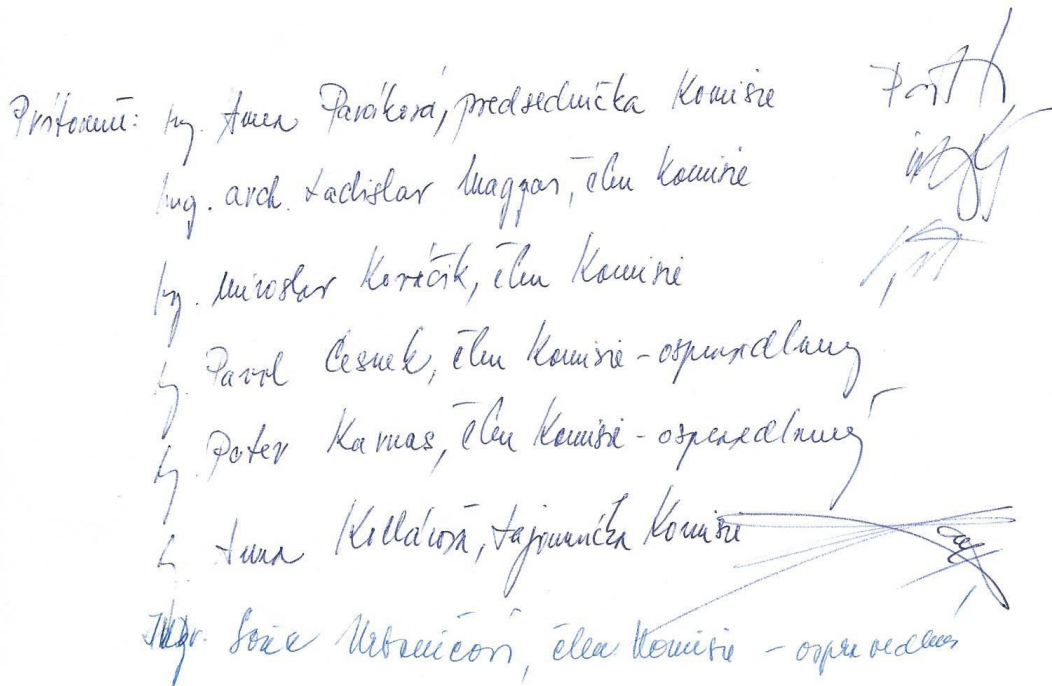 Prítomní: Ing. Anna Paráková, predsedníčka Komisie
Ing. arch. Ladislav Magyar, člen Komisie
Ing. Miroslav Kováčik, člen Komisie
Ing. Pavol Česnek, člen Komisie - ospravedlnený
Ing. Peter Karnas, člen Komisie - ospravedlnený
Anna Kollárová, tajomníčka Komisie
Mgr. Soňa Urbaničová, člen Komisie - ospravedlnená